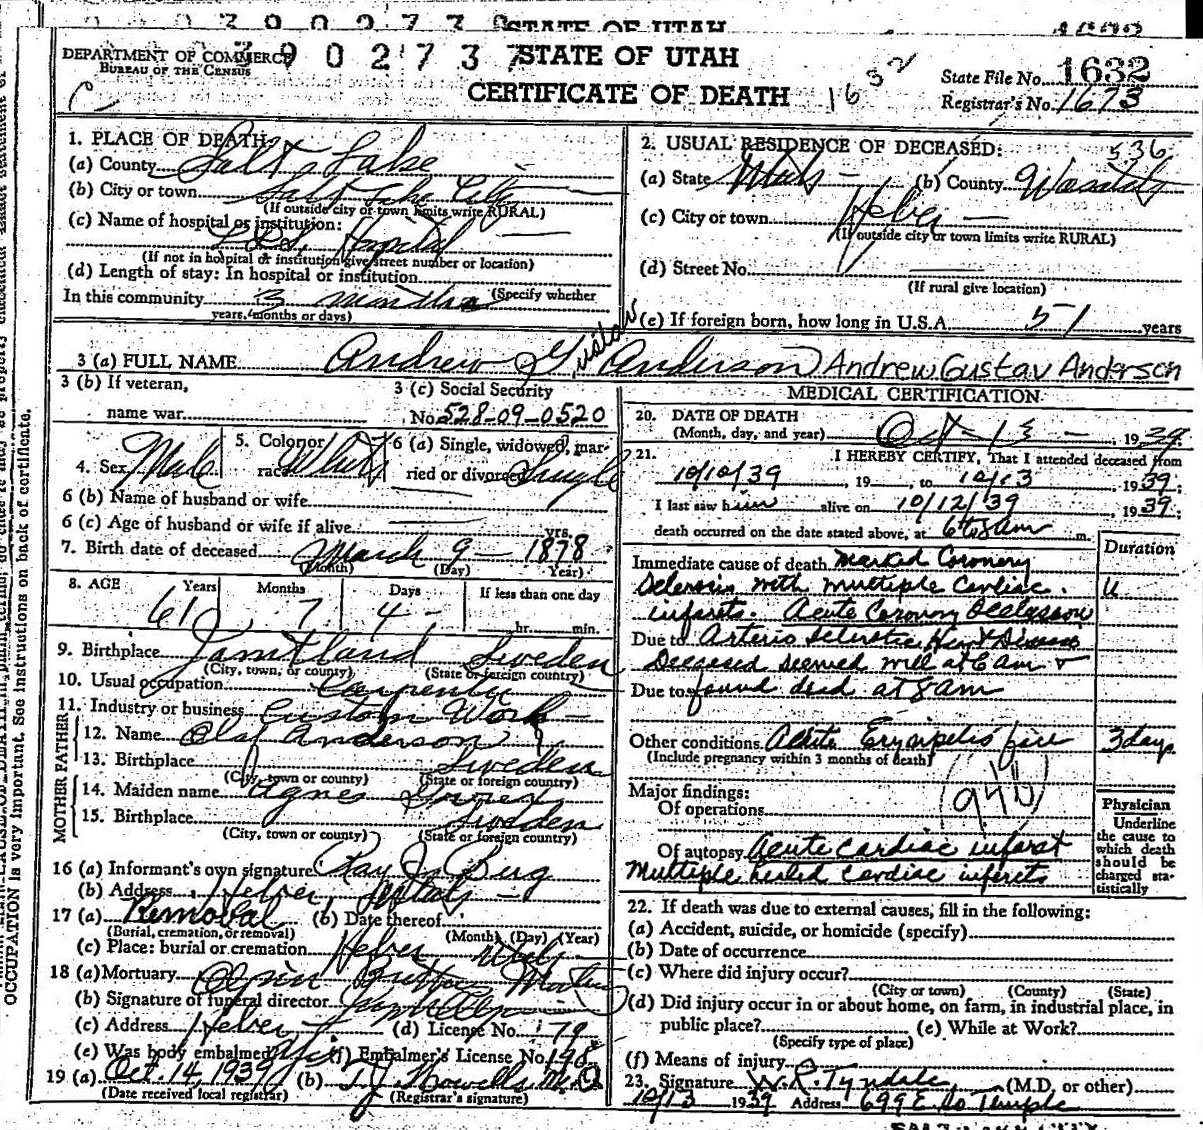 STATE OF UTAH
3 9 0 2 7 3 7
DEPARTMENT OF COMMERCE
BUREAU OF THE CENSUS
STATE OF UTAH
CERTIFICATE OF DEATH
1632
State File No. 1632
Registrar's No. 1673
C
1. PLACE OF DEATH:
(a) County Salt Lake
(b) City or town Salt Lake City
(If outside city or town limits write RURAL)
(c) Name of hospital or institution:
L.D.S. Hospital
(If not in hospital or institution give street number or location)
(d) Length of stay: In hospital or institution
In this community 3 months (Specify whether
years, months or days)
2. USUAL RESIDENCE OF DECEASED: 536
(a) State Utah (b) County Wasatch
(c) City or town Heber
(If outside city or town limits write RURAL)
(d) Street No.
(If rural give location)
(e) If foreign born, how long in U.S.A. 51 years
3 (a) FULL NAME Andrew Gustav Anderson Andrew Gustav Anderson
3 (b) If veteran,
name war
3 (c) Social Security
No. 528-09-0520
4. Sex Male
5. Color or
race White
6 (a) Single, widowed, mar-
ried or divorced Single
6 (b) Name of husband or wife
6 (c) Age of husband or wife if alive yrs.
7. Birth date of deceased March 9 1878
(Month) (Day) Year)
8. AGE Years Months Days If less than one day
61 7 4 hr. min.
9. Birthplace Jamtland Sweden
(City, town, or county) (State or foreign country)
10. Usual occupation Carpenter
11. Industry or business Custom Work
FATHER
12. Name Olaf Anderson
13. Birthplace Sweden
(City, town or county) (State or foreign country)
MOTHER
14. Maiden name Agnes
15. Birthplace Sweden
(City, town or county) (State or foreign country)
16 (a) Informant's own signature Ray J. Berg
(b) Address Heber, Utah
17 (a) Removal (b) Date thereof
(Burial, cremation, or removal) (Month) (Day) (Year)
(c) Place: burial or cremation Heber Utah
18 (a) Mortuary Olpin
(b) Signature of funeral director
(c) Address Heber (d) License No. 79
(e) Was body embalmed? Yes (f) Embalmer's License No. 198
19 (a) Oct. 14, 1939 (b) T. J. Howells M.D.
(Date received local registrar) (Registrar's signature)
MEDICAL CERTIFICATION
20. DATE OF DEATH
(Month, day, and year) Oct 13, 1939.
21. I HEREBY CERTIFY, That I attended deceased from
10/10/39, 19 , to 10/13, 1939;
I last saw him alive on 10/12/39, 1939;
death occurred on the date stated above, at 6 to 8 am m.
Duration
Immediate cause of death Marked Coronary
Sclerosis with multiple Cardiac u
infarcts. Acute Coronary Occlusion
Due to Arterio Sclerotic Heart Disease
Deceased seemed well at 6 am &
Due to found dead at 8 am
Other conditions Acute Erysipelas face 3 days
(Include pregnancy within 3 months of death)
94b
Major findings:
Of operations
Of autopsy Acute cardiac infarct
Multiple healed cardiac infarcts
Physician
Underline
the cause to
which death
should be
charged sta-
tistically
22. If death was due to external causes, fill in the following:
(a) Accident, suicide, or homicide (specify)
(b) Date of occurrence
(c) Where did injury occur?
(City or town) (County) (State)
(d) Did injury occur in or about home, on farm, in industrial place, in
public place? (e) While at Work?
(Specify type of place)
(f) Means of injury
23. Signature W. R. Tyndale, (M.D, or other)
10/13 1939 Address 699 E. So Temple
SALT LAKE CITY
OCCUPATION is very important. See instructions on back of certificate.